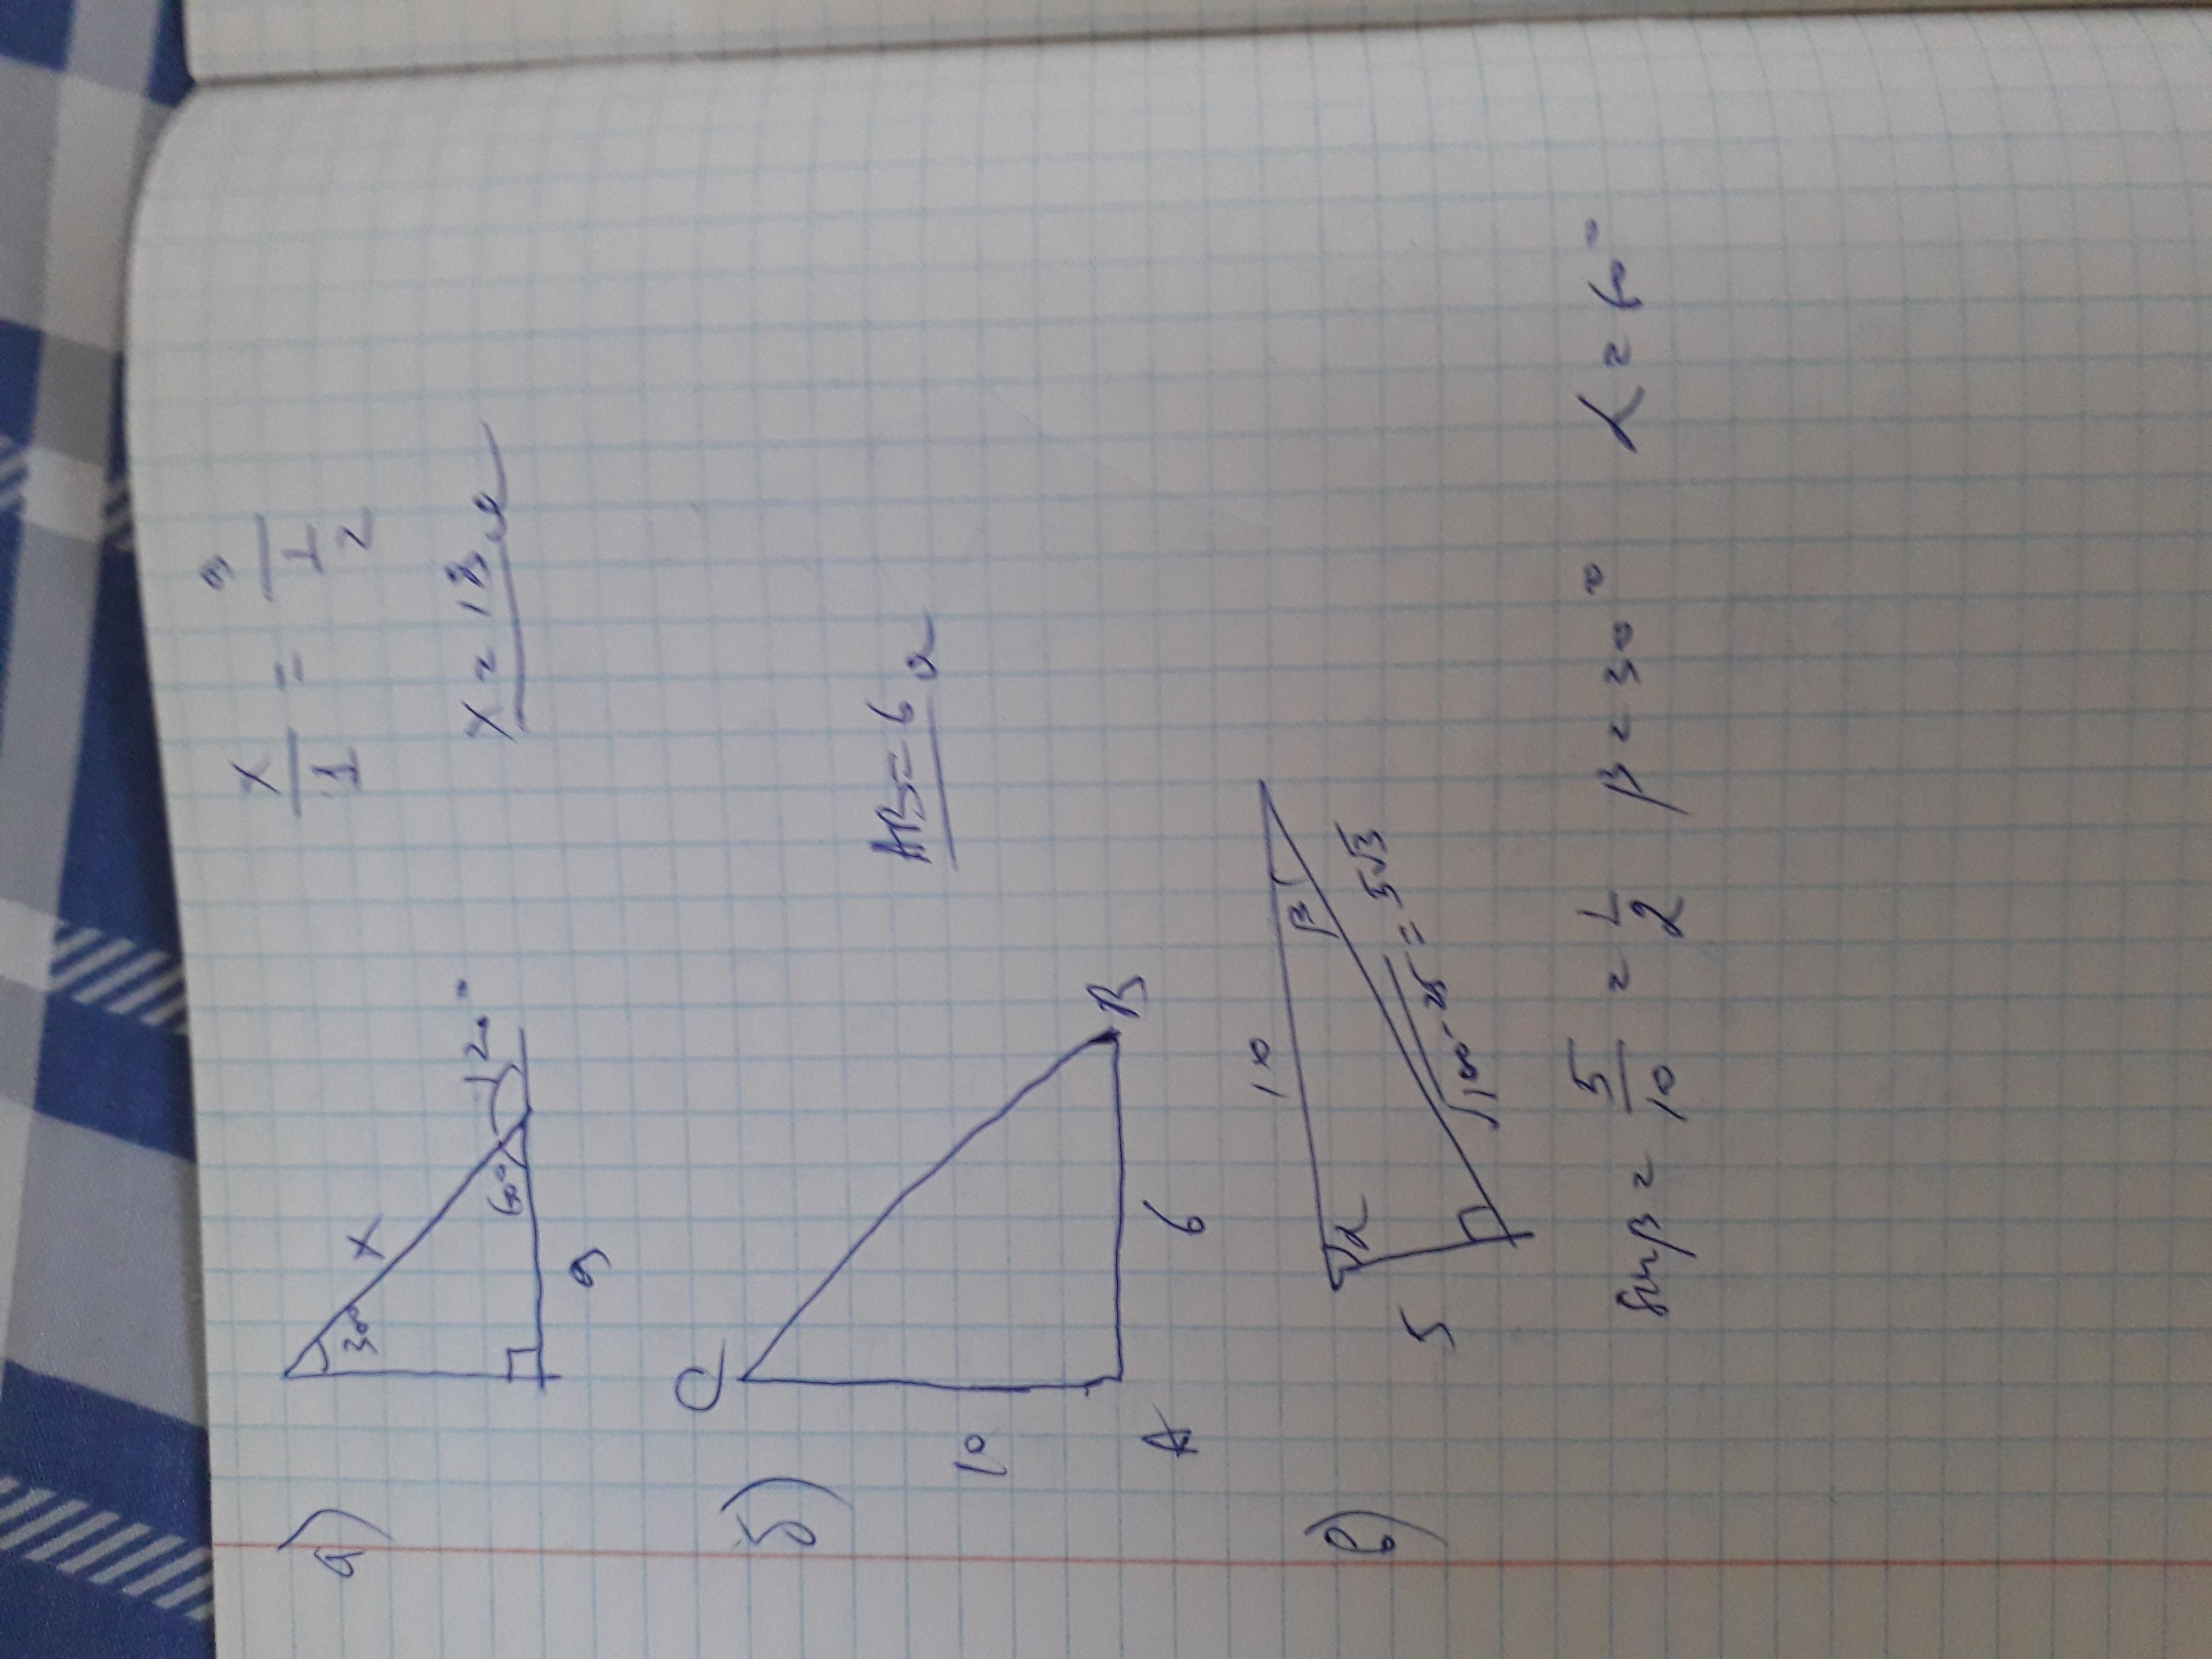 а)
30°
x
60°
120°
9
x/1 = 9/(1/2)
x = 18 см
б)
C
10
A
6
B
AB = 6
в)
10
α
β
5
√100-25 = 5√3
sinβ = 5/10 = 1/2 β = 30° α = 60°